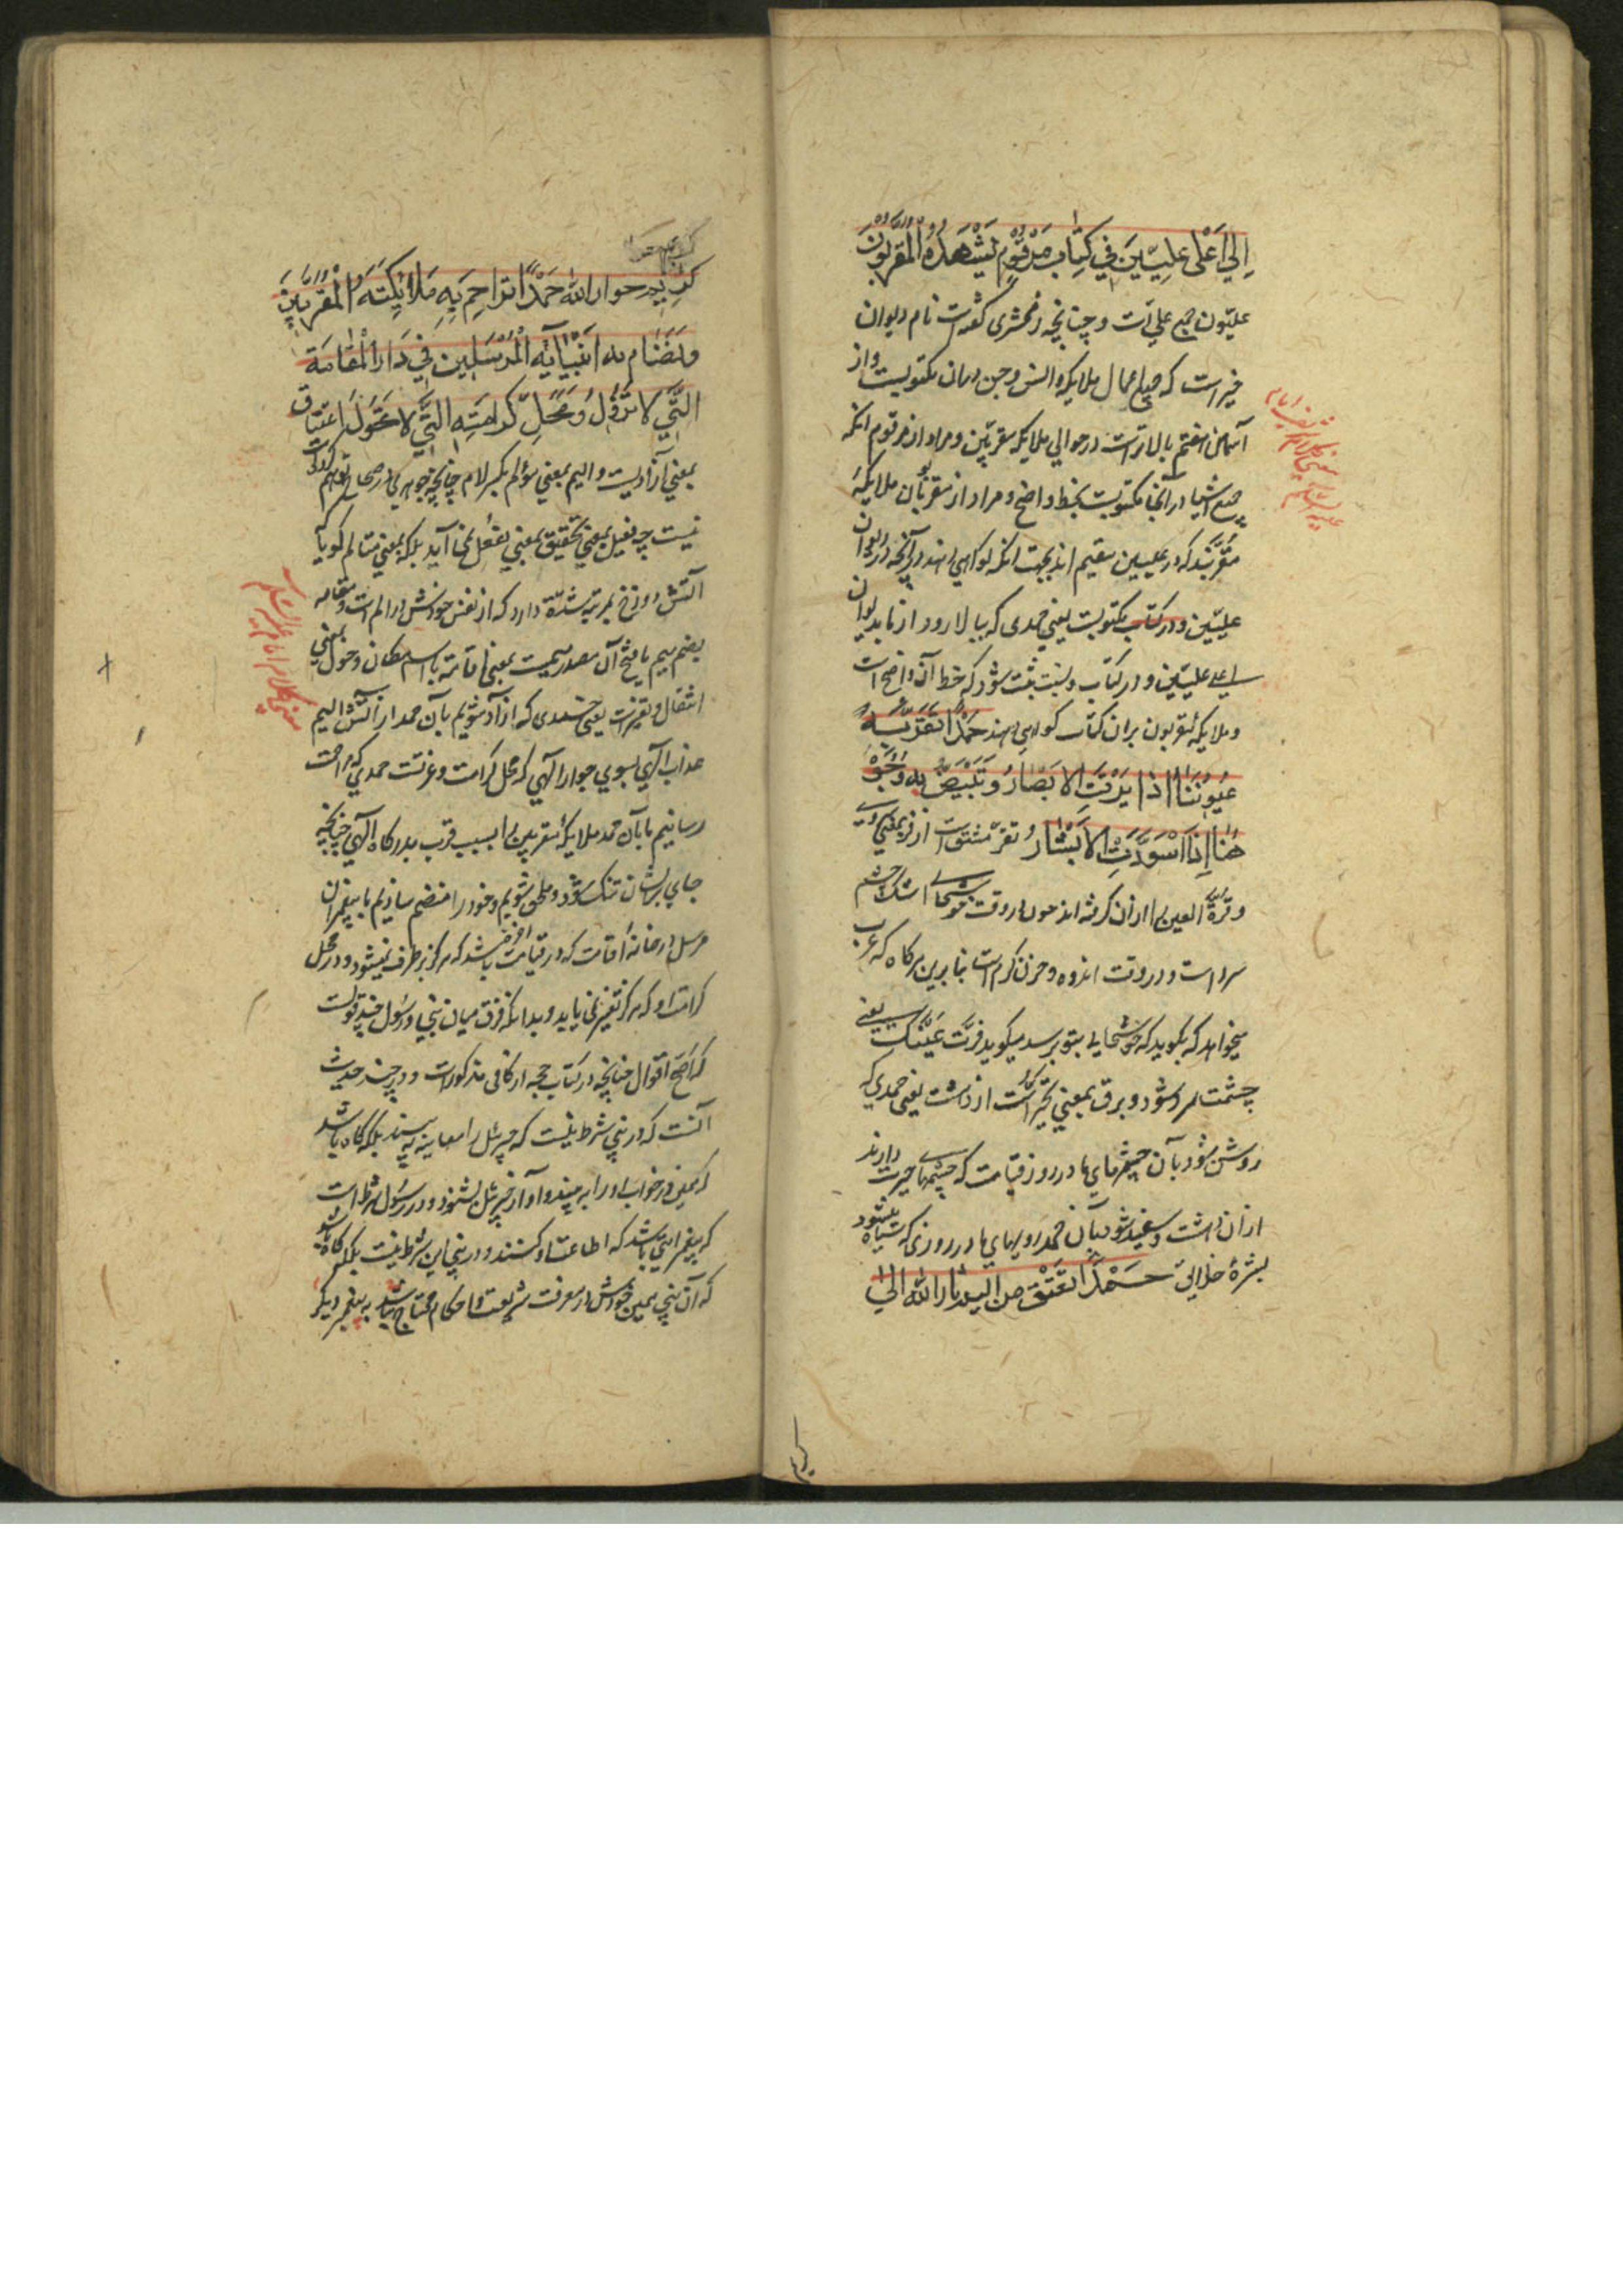 اِلیٰ اَعْلیٰ عِلِیّینَ فِی کِتابٍ مَرْقُومٍ یَشْهَدُهُ الْمُقَرَّبُونَ
علیّون جمع علی است و چنانچه زمخشری گفته است نام دیوان
خیر است که جمیع اعمال ملایکه و انس و جن در ان مکتوبیست و از
آسمان هفتم بالاتر است در حوالی ملایکه مقربین و مراد از مرقوم انکه
جمیع اشیا در آنجا مکتوبست بخط واضح و مراد از مقربون ملایکهٔ
مقربند که در علیین مقیم اند بجهت انکه گواهی دهند در آنچه در دیوان
علیین و در کتاب مکتوبست یعنی حمدی که ببالا رود از ما بدیوان
اعلی علیین و در کتاب ثبت شود که خط آن واضح است
و ملایکه مقربون بر ان کتاب گواهی دهند حَمْداً تَقَرُّ بِهِ
عُیُونُنَا اذا بَرِقَتِ الاَبْصارُ وَ تَبْیَضُّ بِهِ وُجُوهُ
هُنا اِذَا اسْوَدَّتِ الاَبْشارُ تقرّ مشتق است از قر بمعنی سردی
و قرة العین را از ان گرفته اند چون در وقت خوشحالی اشک چشم
سرد است و در وقت اندوه و حزن گرم است بنابرین هرگاه که عرب
میخواهد که بگوید که خوشحالی بتو برسد میگوید قرّت عینک یعنی
چشمت سرد شود و برق بمعنی تحیّر است از دهشت یعنی حمدی که
روشن شود بآن چشمهای ما در روز قیامت که چشمها حیرت دارند
از ان دهشت و سفید شود بآن حمد رویهای ما در روزی که سیاه میشود
بشرهٔ خلایق حَمْداً نُعْتَقُ بِهِ مِن اَلیمِ نارِ اللّه اِلیٰ
کریم
کریم جوار اللّه حَمْداً نُزاحِمُ بِهِ مَلائِکَتَهُ الْمُقَرَّبینَ
وَ نُضَامُّ بِهِ اَنْبِیائَهُ الْمُرْسَلینَ فِی دَارِ الْمُقامَةِ
الَّتی لا تَزُولُ وَ مَحَلِّ کَرامَتِهِ الَّتی لا تَحُولُ اعتاق
بمعنی آزادیست و الیم بمعنی مؤلم بکسر لام چنانچه جوهری در صحاح توهم کرده است
نیست چه فعیل بمعنی تحقیق بمعنی مفعل نمی آید بلکه بمعنی متالم گویا که
آتش دوزخ بمرتبهٔ شدة دارد که از نفس خودش در الم است و مقامه
بضم میم یا فتح آن مصدر میمیست بمعنی اقامة یا اسم مکان و حول بمعنی
انتقال و تغیر است یعنی حمدی که آزاد شویم بآن حمد از آتش الیم
عذاب الهی بسوی جوار الهی که محل کرامت و عزتست حمدی که مزاحمت
رسانیم ما بآن حمد ملایکهٔ مقربین را بسبب قرب بدرگاه الهی چنانچه
جای بر ایشان تنگ شود و ملحق شویم و خود را منضم سازیم با پیغمبران
مرسل در خانهٔ اقامت که در قیامت باشد که هرگز برطرف نمیشود و در محل
کرامت او که هرگز تغیر نمی یابد و بدانکه فرق میان نبی و رسول چند قولست
که اصح اقوال چنانچه در کتاب حجه از کافی مذکور است و در چند حدیث
آنست که در نبی شرط نیست که جبرئیل را معاینه به بیند بلکه گاه باشد
که همین در خواب او را به بیند و آواز جبرئیل بشنود و در رسول شرط است
که پیغمبر امتی باشد که اطاعت او کنند و در نبی این شرط نیست بلکه گاه باشد
که آن نبی همین خودش در معرفت شریعت و احکام محتاج نباشد به پیغمبر دیگر